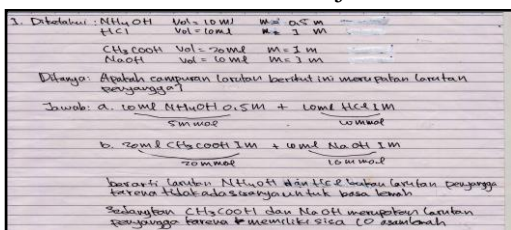 1. Diketahui : NH4OH Vol = 10 ml M = 0,5 m
HCl Vol = 10ml M = 1 m
CH3COOH Vol = 20ml M = 1 m
NaOH Vol = 10 ml M = 1 m
Ditanya : Apatah campuran larutan berikut ini merupakan larutan
penyangga?
Jawab : a. 10ml NH4OH 0.5M + 10ml HCl 1M
5 mmol 10 mmol
b. 20ml CH3COOH 1M + 10ml NaOH 1M
20 mmol 10 mmol
berarti larutan NH4OH dan HCl bukan larutan penyangga
karena tidak ada sisanya untuk basa lemah
Sedangkan CH3COOH dan NaOH merupakan larutan
penyangga karena memiliki sisa 10 asam lemah